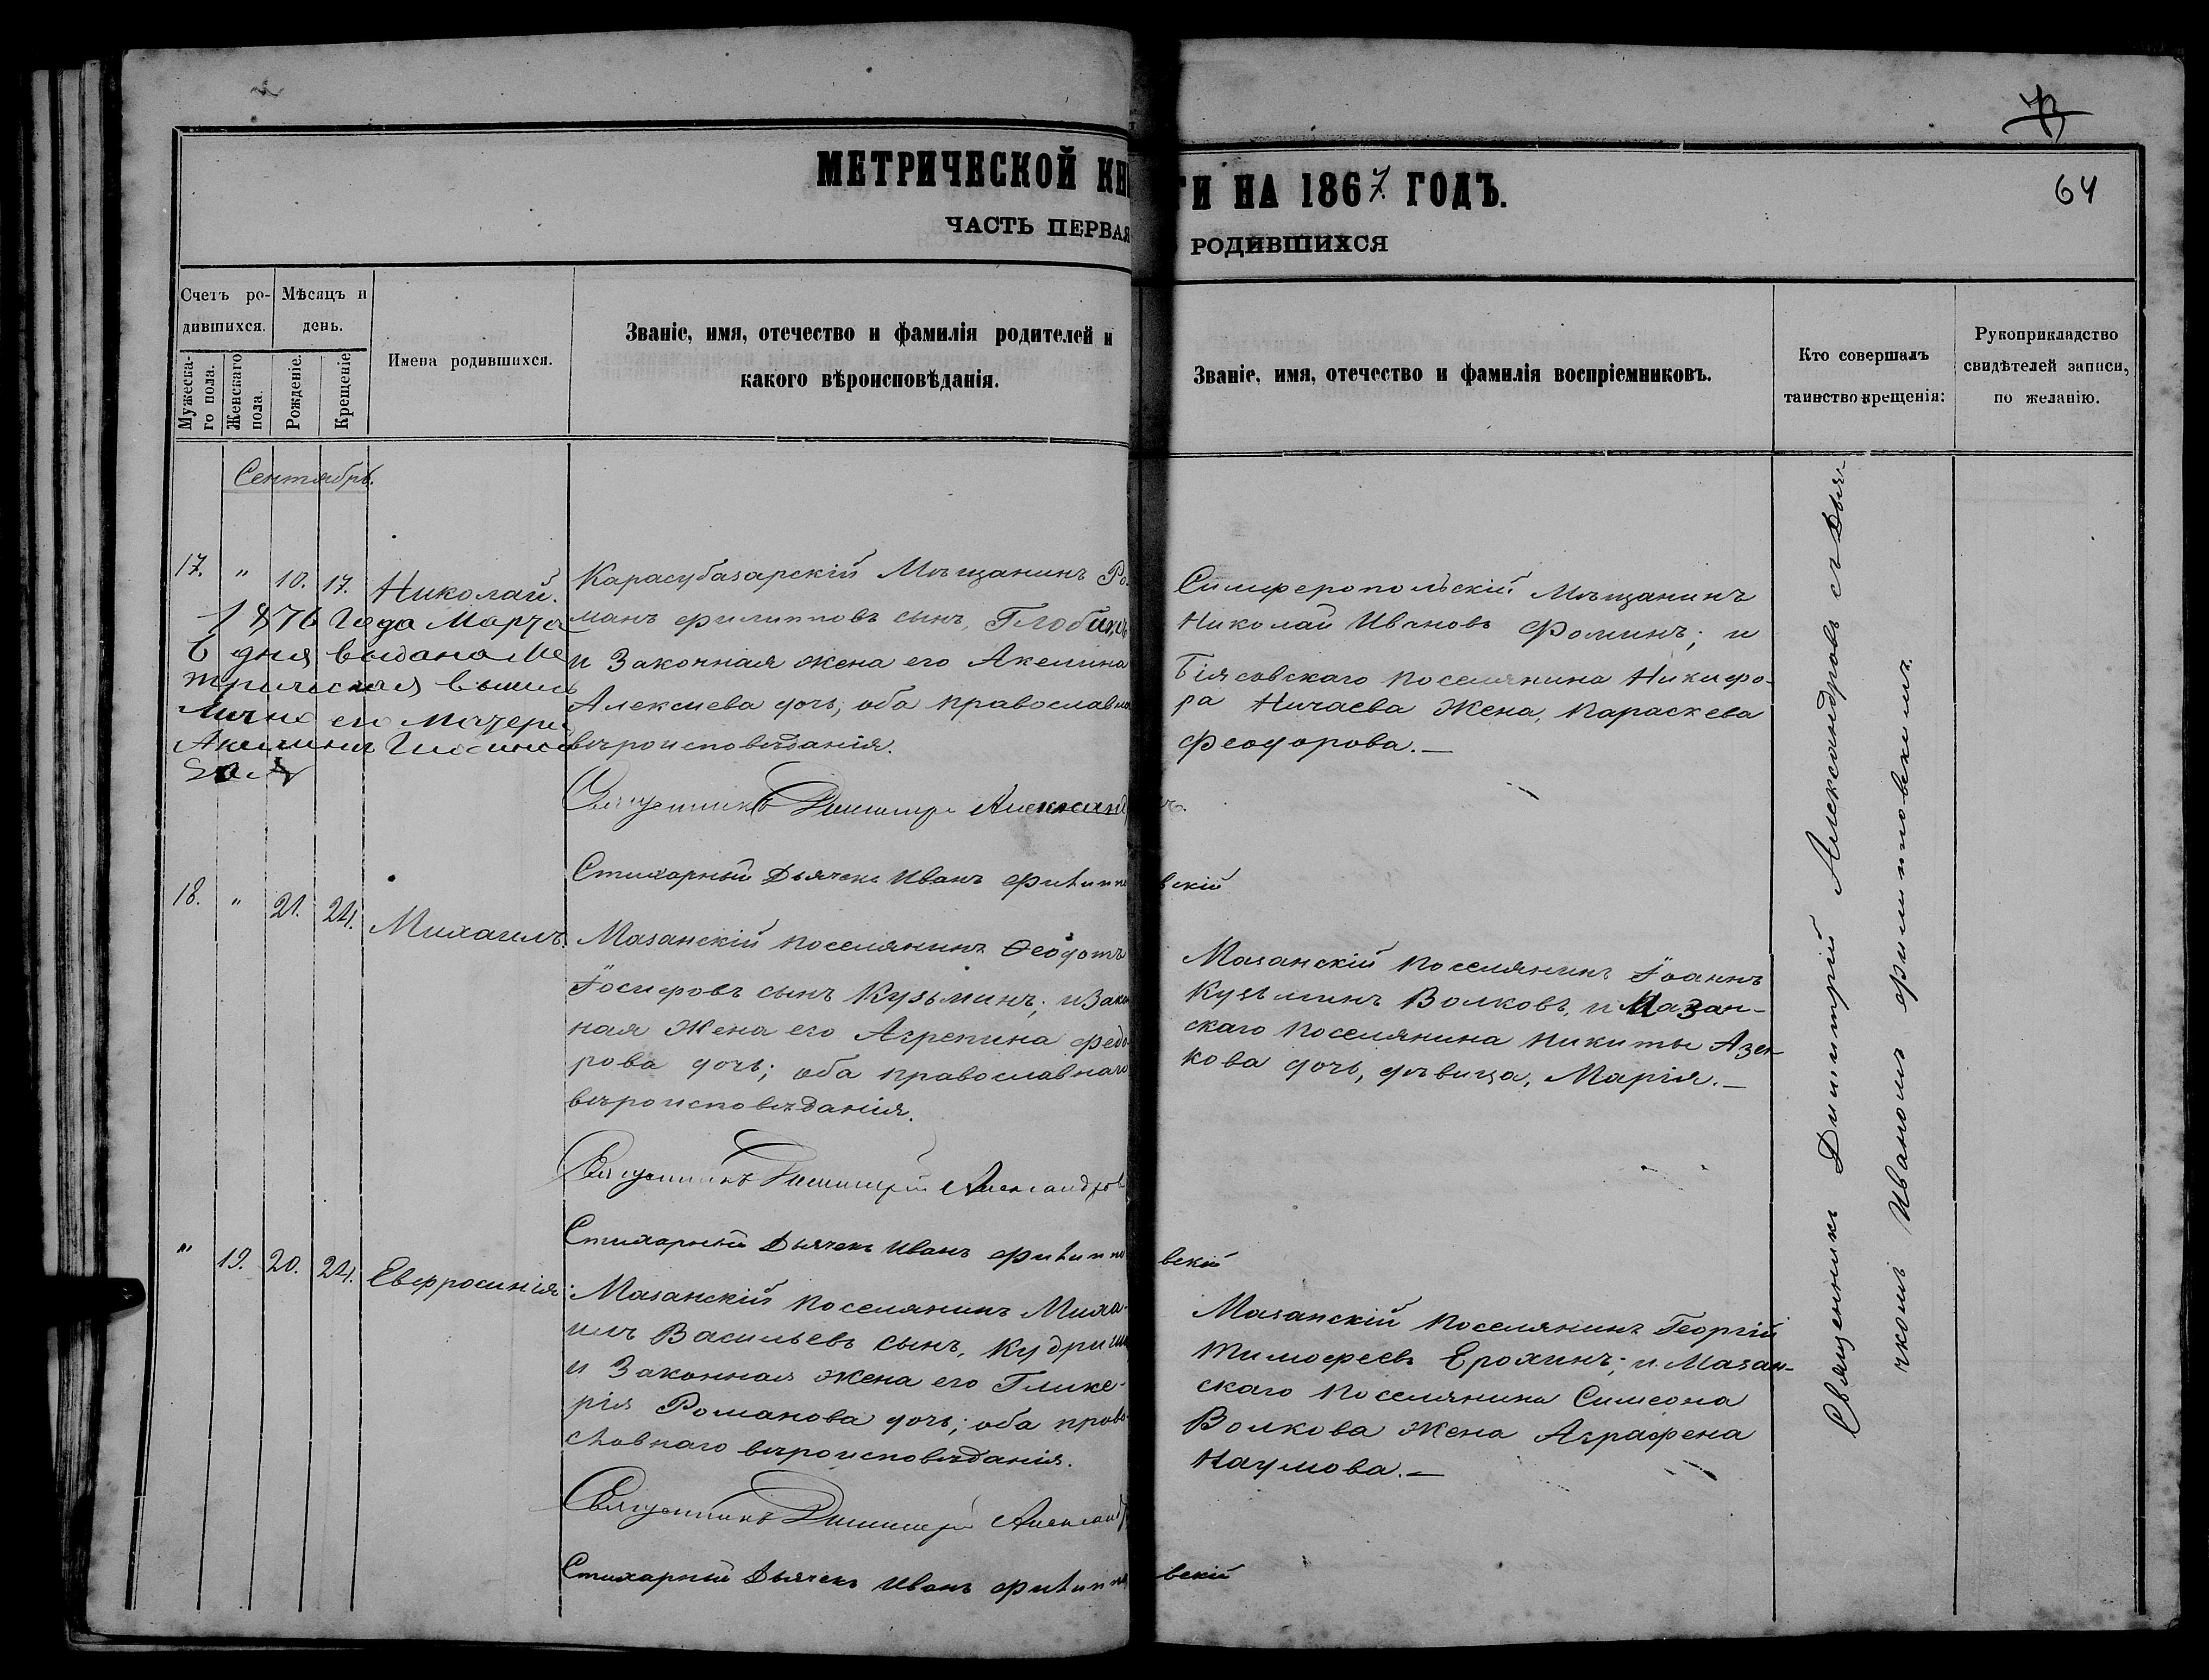 73
64
МЕТРИЧЕСКОЙ КНИГИ НА 1867 ГОДЪ.
ЧАСТЬ ПЕРВАЯ РОДИВШИХСЯ
Счетъ ро-
дившихся.
Мужеска-
го пола.
Женскаго
пола.
Мѣсяцъ и
день.
Рожденіе.
Крещеніе.
Имена родившихся.
Званіе, имя, отечество и фамилія родителей и
какого вѣроисповѣданія.
Званіе, имя, отечество и фамилія воспріемниковъ.
Кто совершалъ
таинство крещенія:
Рукоприкладство
свидѣтелей записи,
по желанію.
Сентябрь.
17. " 10. 17. Николай.
1876 Года Марта
6 дня выдана Ме
трическая выпись
лично его матери
Акилины
Карасубазарскій Мѣщанинъ Ро-
манъ Филипповъ сынъ,
и Законная жена его Акилина
Алексиева дочь; оба православна
вѣроисповѣданія.
Священникъ Димитрій Александровъ.
Стихарный Дьячекъ Иванъ Филипповскій
Симферопольскій Мѣщанинъ
Николай Ивановъ Фоминъ; и
Біясовскаго поселянина Никифо-
ра Ничаева Жена, Параскева
Феодорова.—
18. " 21. 24. Михаилъ.
Мазанскій поселянинъ Ѳеодотъ
Іосифовъ сынъ Кузьминъ; и Закон
ная Жена его Агрепина Федо-
рова дочь; оба православнаго
вѣроисповѣданія.
Священникъ Димитрій Александров
Стихарный Дьячекъ Иванъ Филипповскій
Мазанскій поселянинъ Іоаннъ
Кузьминъ Волковъ, и Мазан-
скаго поселянина Никиты Азен-
кова дочь, дѣвица, Марія.—
" 19. 20. 24. Евфросинія.
Мазанскій поселянинъ Миха-
илъ Васильевъ сынъ,
и Законная Жена его Глике-
рія Романова дочь; оба право-
славнаго вѣроисповѣданія.
Священникъ Димитрій Александр
Стихарный Дьячекъ Иванъ Филипповскій
Мазанскій поселянинъ Георгій
Тимофеевъ Ерохинъ; и Мазан-
скаго поселянина Симеона
Волкова Жена Аграфена
Наумова.—
Священникъ Димитрій Александровъ съ Дья-
чкомъ Иваномъ Филипповскимъ.